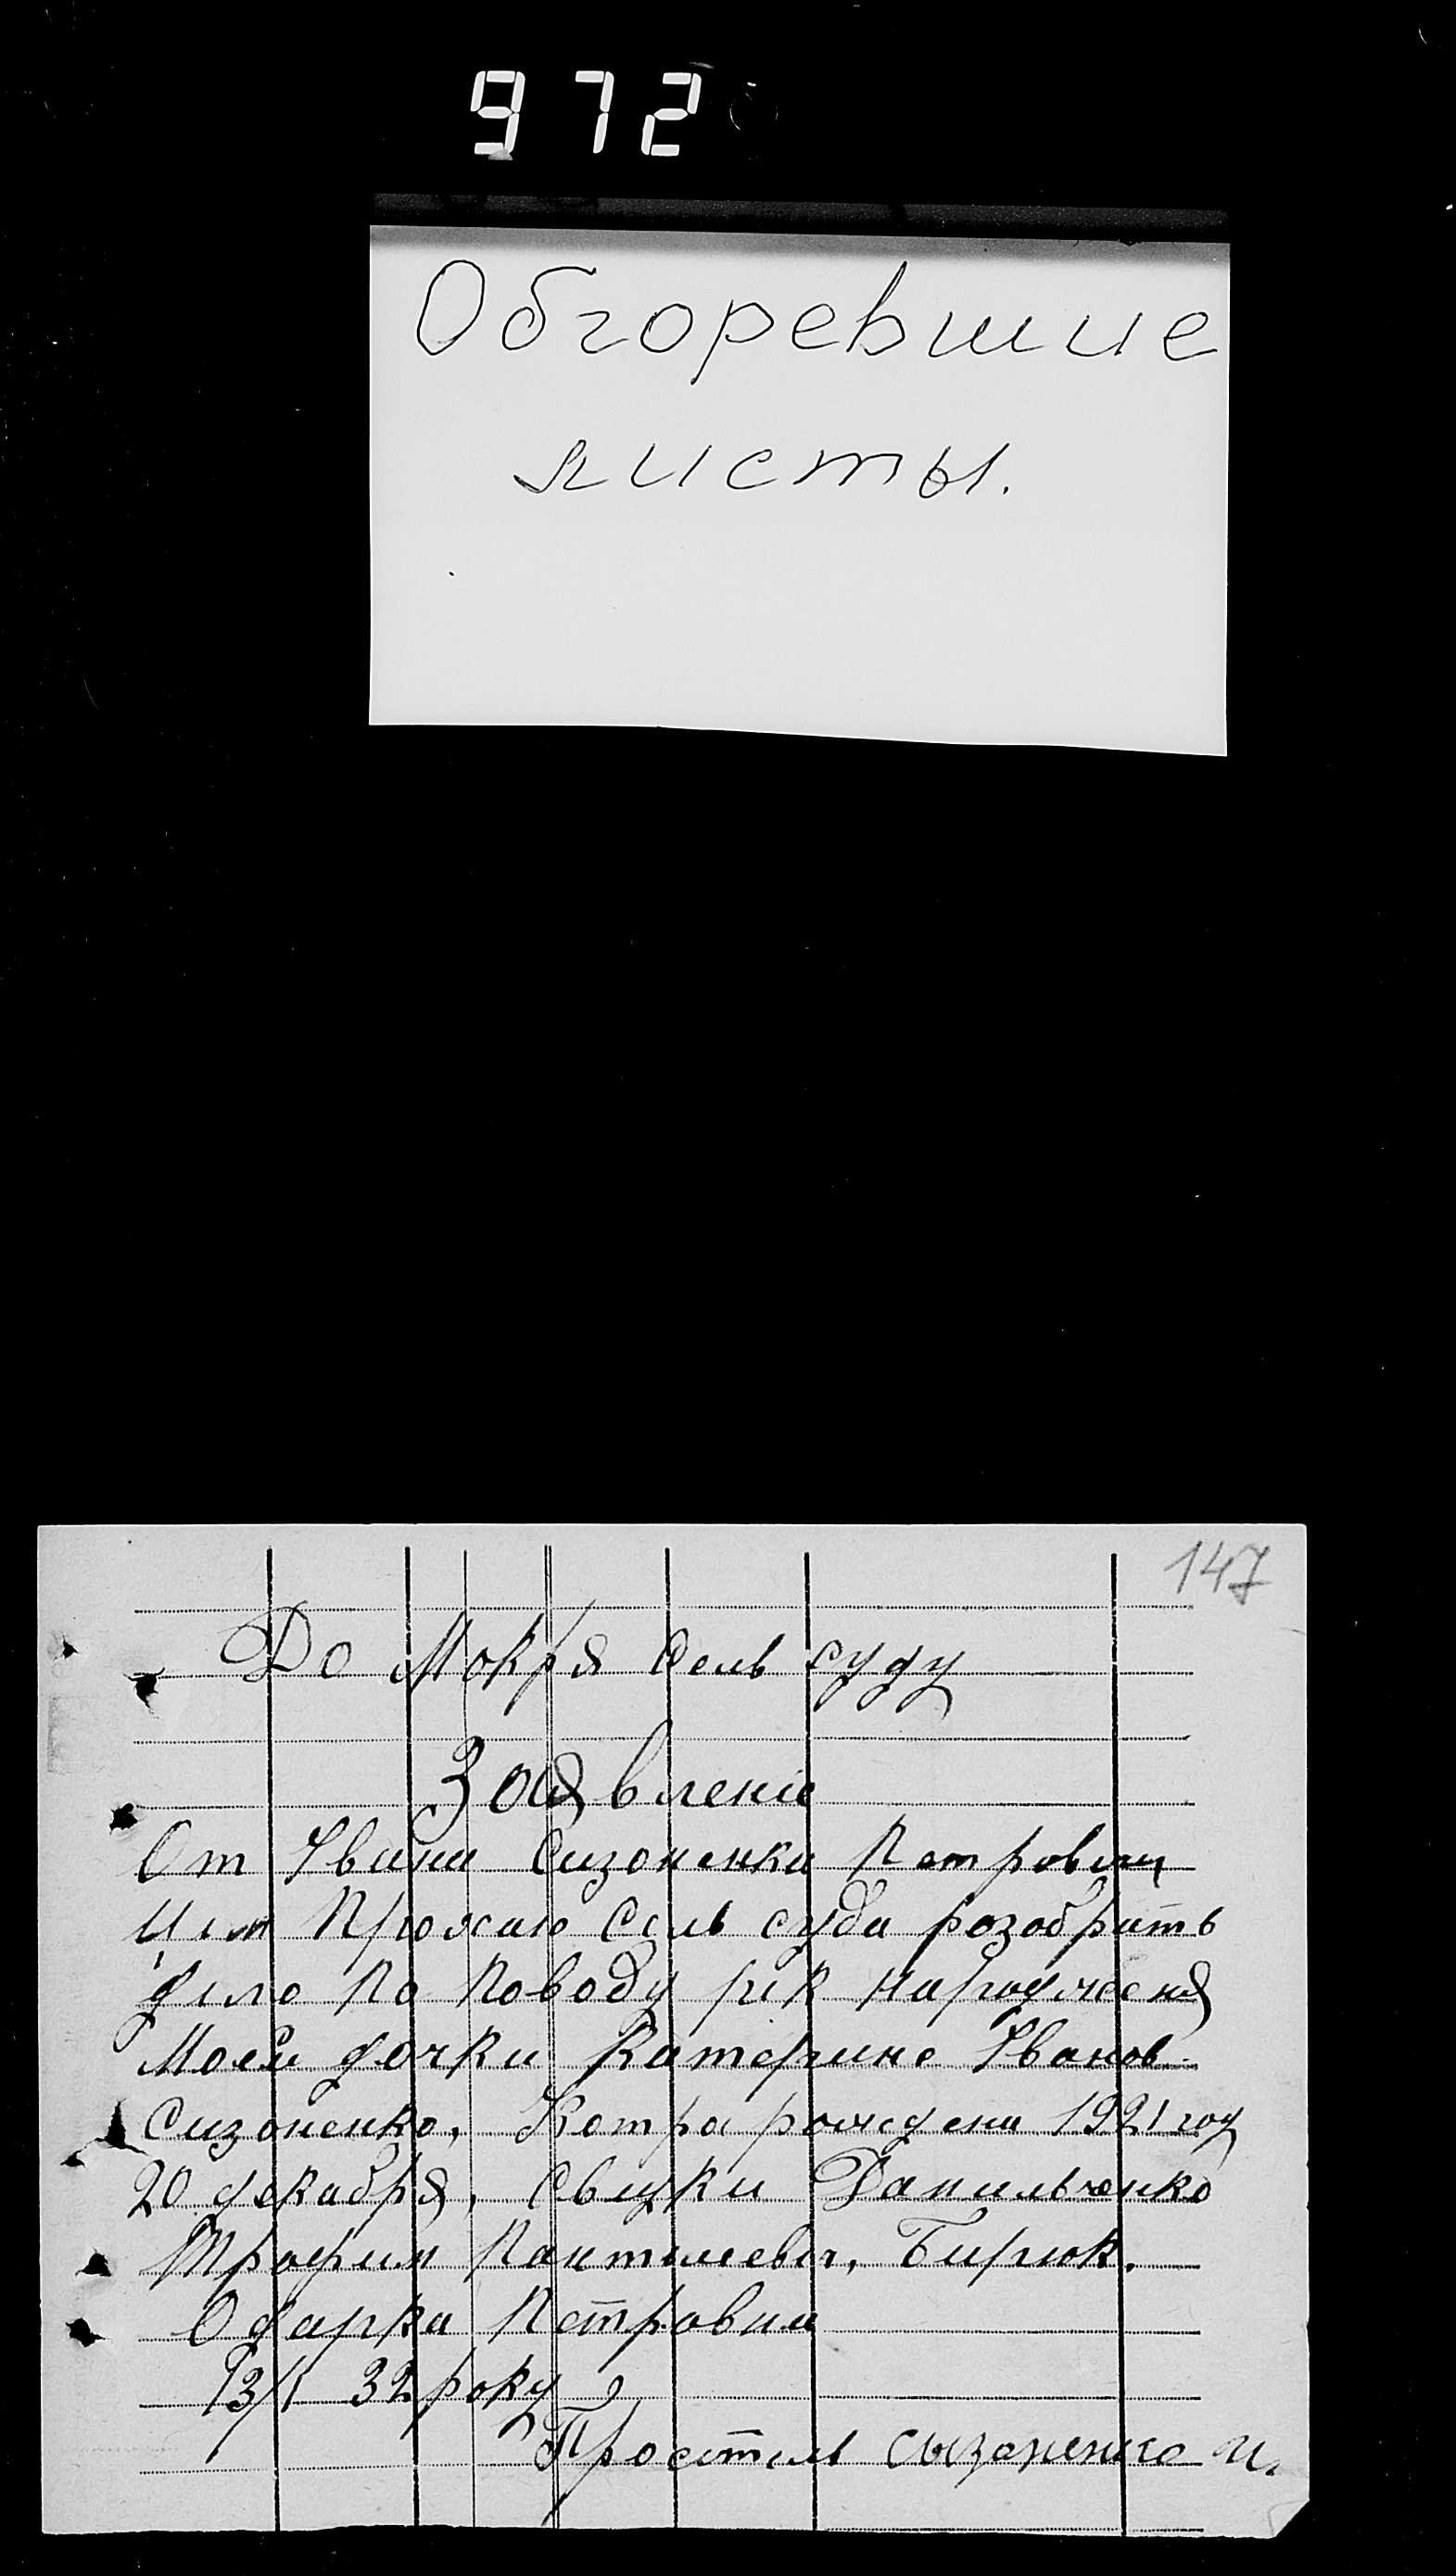 972
Обгоревшие
листы.
147
До Мокря Сель суду
Зоявленіе
От Івана Сизоненка Петрович
Цим Прохаю Сель суда розобрать
дило по поводу рік народженя
Моеи дочки Катерине Іванов-
Сизоненко, Котра рождена 1921 год
20 декабря, Свидки Данильченко
Трофим Пантилеевич, Бирюк.
Одарка Петровна
13/I 32 року
сизоненко И.